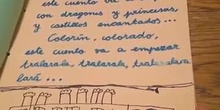 este cuento va de
con dragones y princesas,
y castillos encantados...
Colorín, colorado,
este cuento va a empezar
tralarala, tralarala, tralaralara
lará...